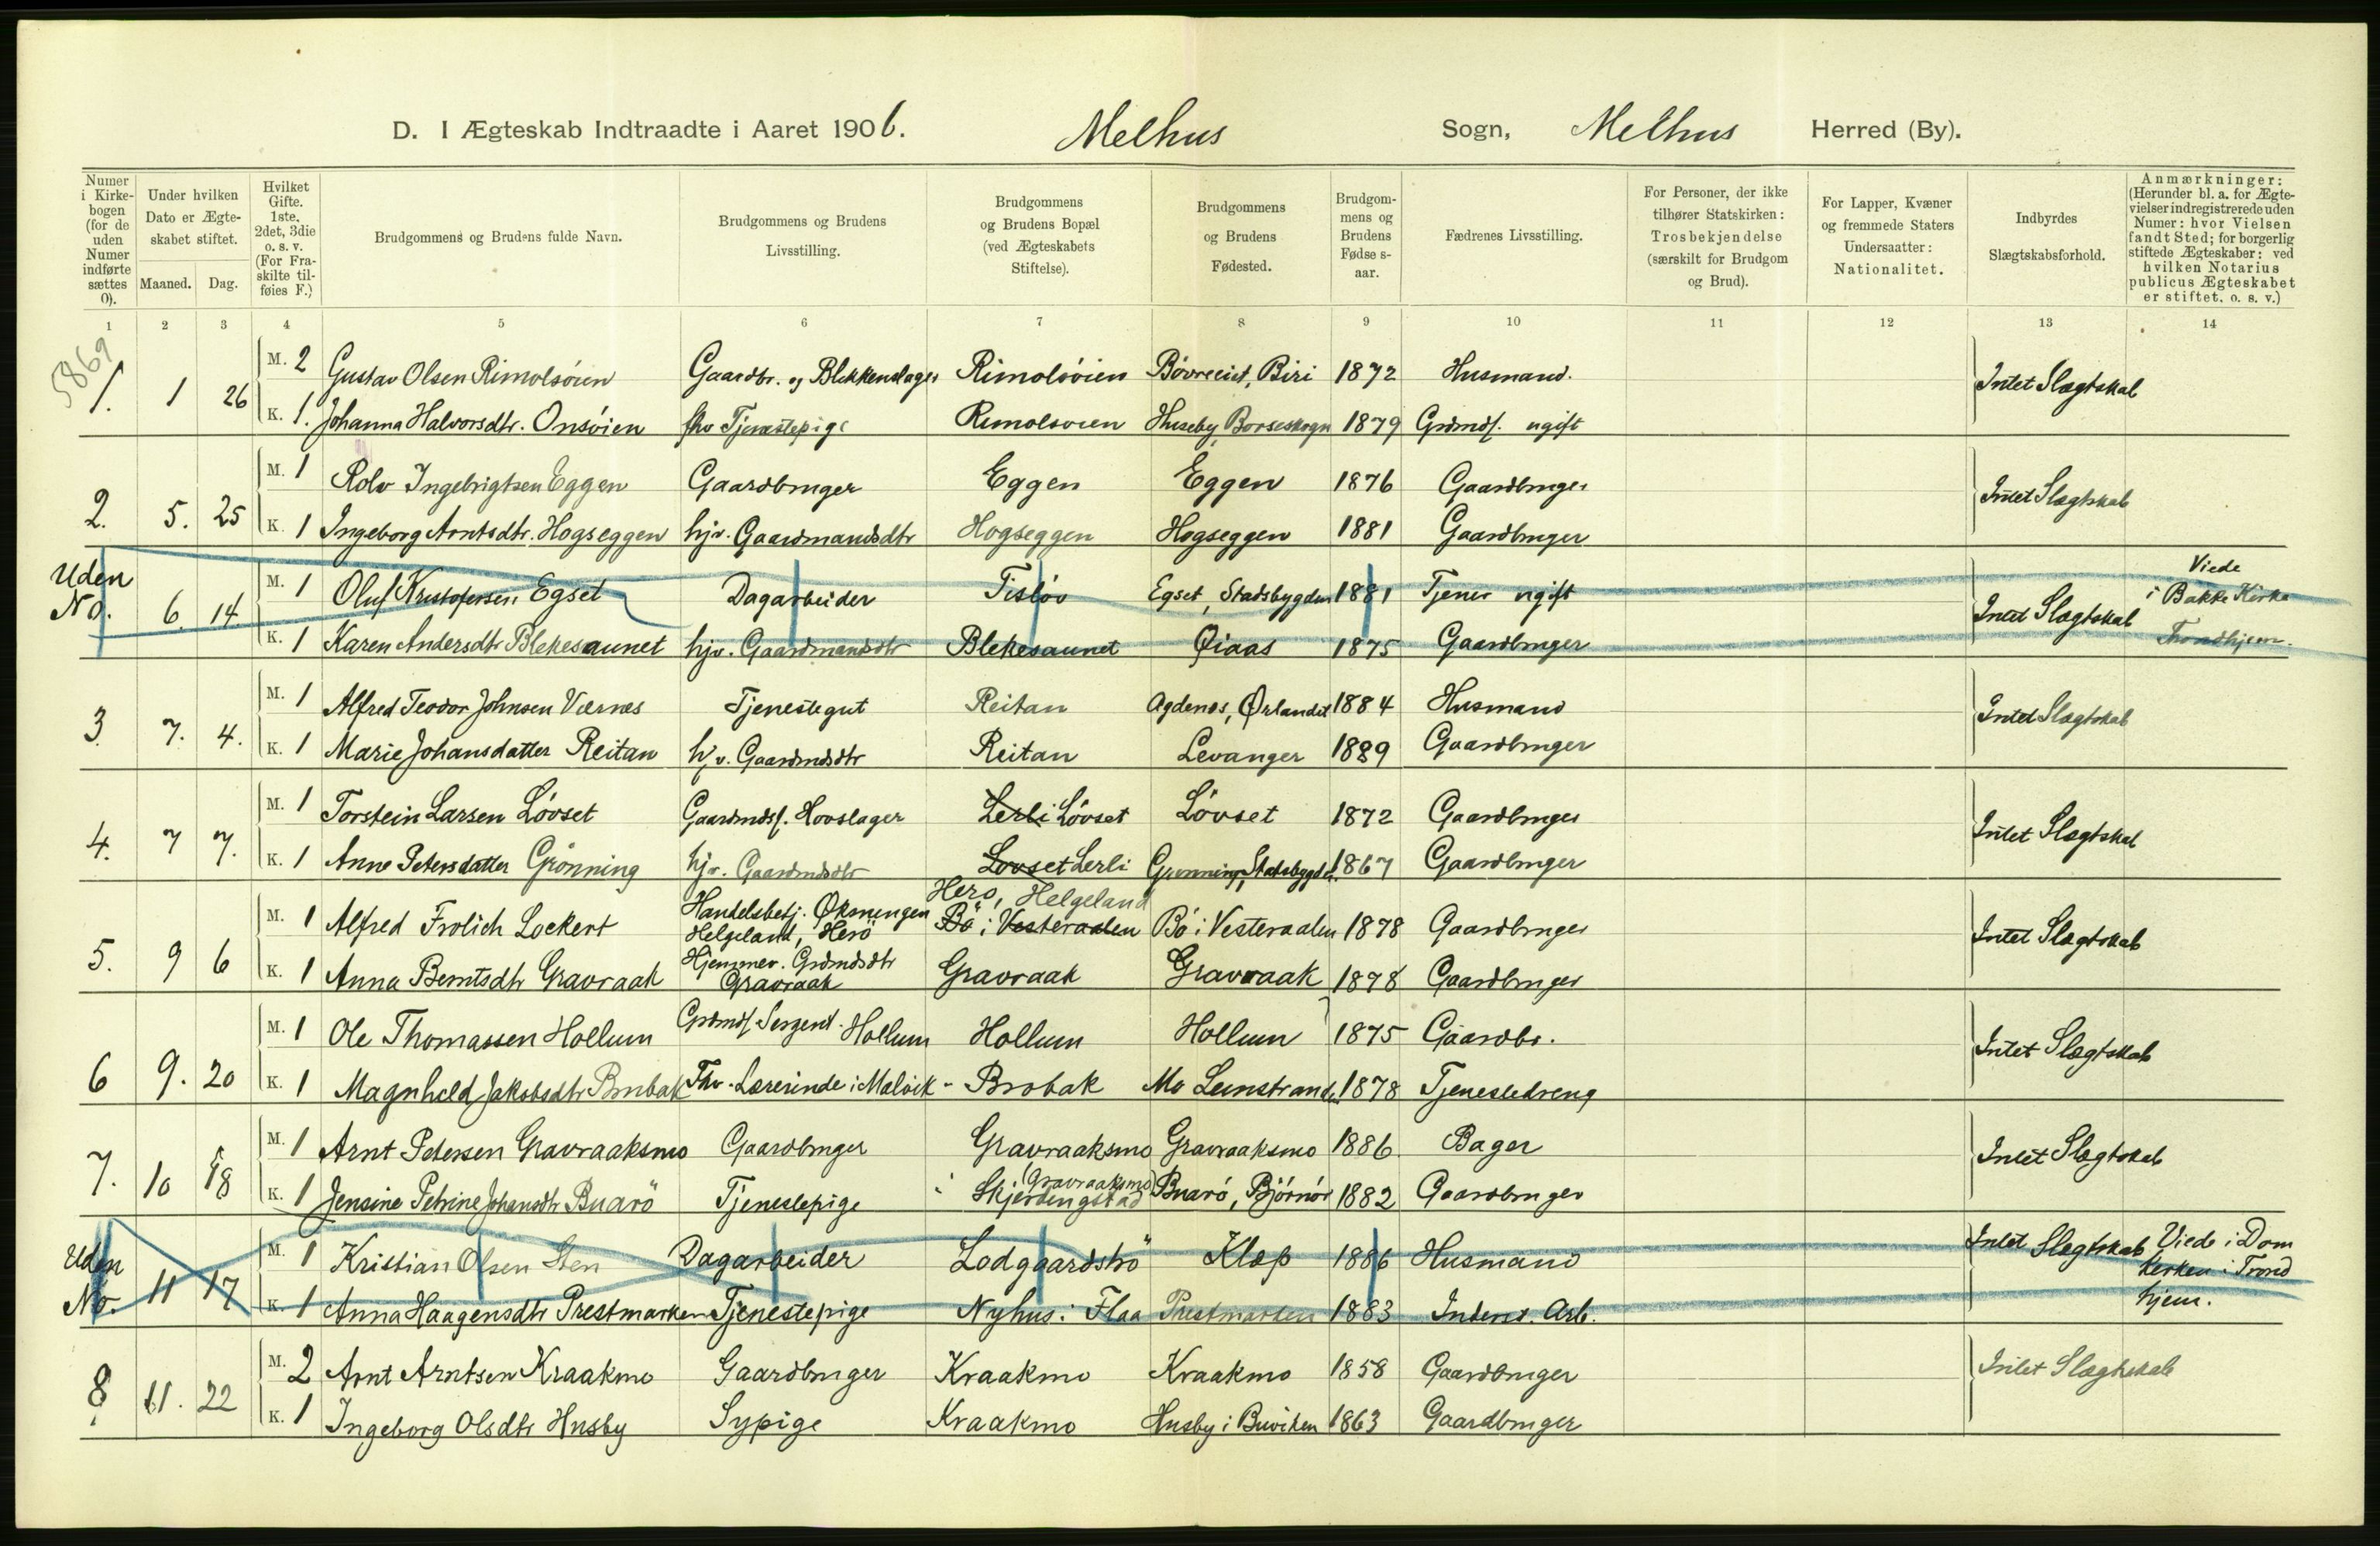 D. I Ægteskab Indtraadte i Aaret 1906. Melhus Sogn, Melhus Herred (By).
Numer i Kirkebogen (for de uden Numer indførte sættes 0).
Under hvilken Dato er Ægteskabet stiftet.
Maaned. Dag.
Hvilket Gifte. 1ste, 2det, 3die o. s. v. (For Fraskilte tilføies F.)
Brudgommens og Brudens fulde Navn.
Brudgommens og Brudens Livsstilling.
Brudgommens og Brudens Bopæl (ved Ægteskabets Stiftelse).
Brudgommens og Brudens Fødested.
Brudgommens og Brudens Fødse s-aar.
Fædrenes Livsstilling.
For Personer, der ikke tilhører Statskirken: Trosbekjendelse (særskilt for Brudgom og Brud).
For Lapper, Kvæner og fremmede Staters Undersaatter: Nationalitet.
Indbyrdes Slægtskabsforhold.
Anmærkninger: (Herunder bl. a. for Ægtevielser indregistrerede uden Numer: hvor Vielsen fandt Sted; for borgerlig stiftede Ægteskaber: ved hvilken Notarius publicus Ægteskabet er stiftet. o. s. v.)
1 2 3 4 5 6 7 8 9 10 11 12 13 14
5869
1. 1 26 M. 2 Gustav Olsen Rimolsöien Gaardbr. og Blikkenslager Rimolsöien Biri 1872 Husmand. Intet Slægtskab
K. 1. Johanna Halvorsdtr. Onsöien fhv Tjenestepige Rimolsöien Huseby, Borseskogn 1879 Grdmds. ugift
2. 5. 25 M. 1 Rolv Ingebrigtsen Eggen Gaardbruger Eggen Eggen 1876 Gaardbruger Intet Slægtskab
K. 1 Ingeborg Arntsdtr. Hogseggen hjv. Gaardmandsdtr Hogseggen Hogseggen 1881 Gaardbruger
Uden No. 6. 14 M. 1 Oluf Kristofersen Egset Dagarbeider Egset, Stadsbygden 1881 Tjener ugift Intet Slægtskab Viede i Bakke Kirke Trondhjem.
K. 1 Karen Andersdtr Blekesaunet hjv. Gaardmandsdtr Blekesaunet Øiaas 1875 Gaardbruger
3 7. 4. M. 1 Alfred Teodor JohnsenVærnes Tjenestegut Reitan Agdenes, Ørlandet 1884 Husmand Intet Slægtskab
K. 1 Marie Johansdatter Reitan hjv. Gaardmdsdtr Reitan Levanger 1889 Gaardbruger
4. 7 7. M. 1 Torstein Larsen Lövset Gaardmds. Hovslager Lerli Lövset Lövset 1872 Gaardbruger Intet Slægtskab
K. 1 Anne Petersdatter Grönning hjv. Gaardmdsdtr Lövset Lerli Grönning, Stadsbygd. 1867 Gaardbruger
5. 9 6 M. 1 Alfred Frolich Lockert Handelsbetj. Øksningen Helgeland, Herö Herö, Helgeland Bö i Vesteraalen Bö i Vesteraalen 1878 Gaardbruger Intet Slægtskab
K. 1 Anna Berntsdtr Gravraak Hjemmev. Grdmdsdtr Gravraak Gravraak Gravraak 1878 Gaardbruger
6 9. 20 M. 1 Ole Thomassen Hollum Grdmds. Sergent. Hollum Hollum Hollum 1875 Gaardbr. Intet Slægtskab
K. 1 Magnhild Jakobsdtr Brubak Fhv. Lærerinde i Malvik - Brobak Mo Leinstranden 1878 Tjenestedreng
7. 10 18 M. 1 Arnt Petersen Gravraaksmo Gaardbruger Gravraaksmo Gravraaksmo 1886 Bager Intet Slægtskab
K. 1 Jensine Petrine Johansdtr Buarö Tjenestepige (Gravraaksmo) Skjerdingstad Buarö, Björnör 1882 Gaardbruger
Uden No. 11 17 M. 1 Kristian Olsen Sten Dagarbeider Lodgaardströ Klæp 1886 Husmand Intet Slægtskab Viede i Dom kirken i Trond hjem.
K. 1 Anna Haagensdtr Prestmarken Tjenestepige Nyhus i Flaa Prestmarken 1883 Inderst. Arb.
8 11. 22 M. 2 Arnt Arntsen Kraakmo Gaardbruger Kraakmo Kraakmo 1858 Gaardbruger Intet Slægtskab
K. 1 Ingeborg Olsdtr Husby Sypige Kraakmo Husby i Buviken 1863 Gaardbruger